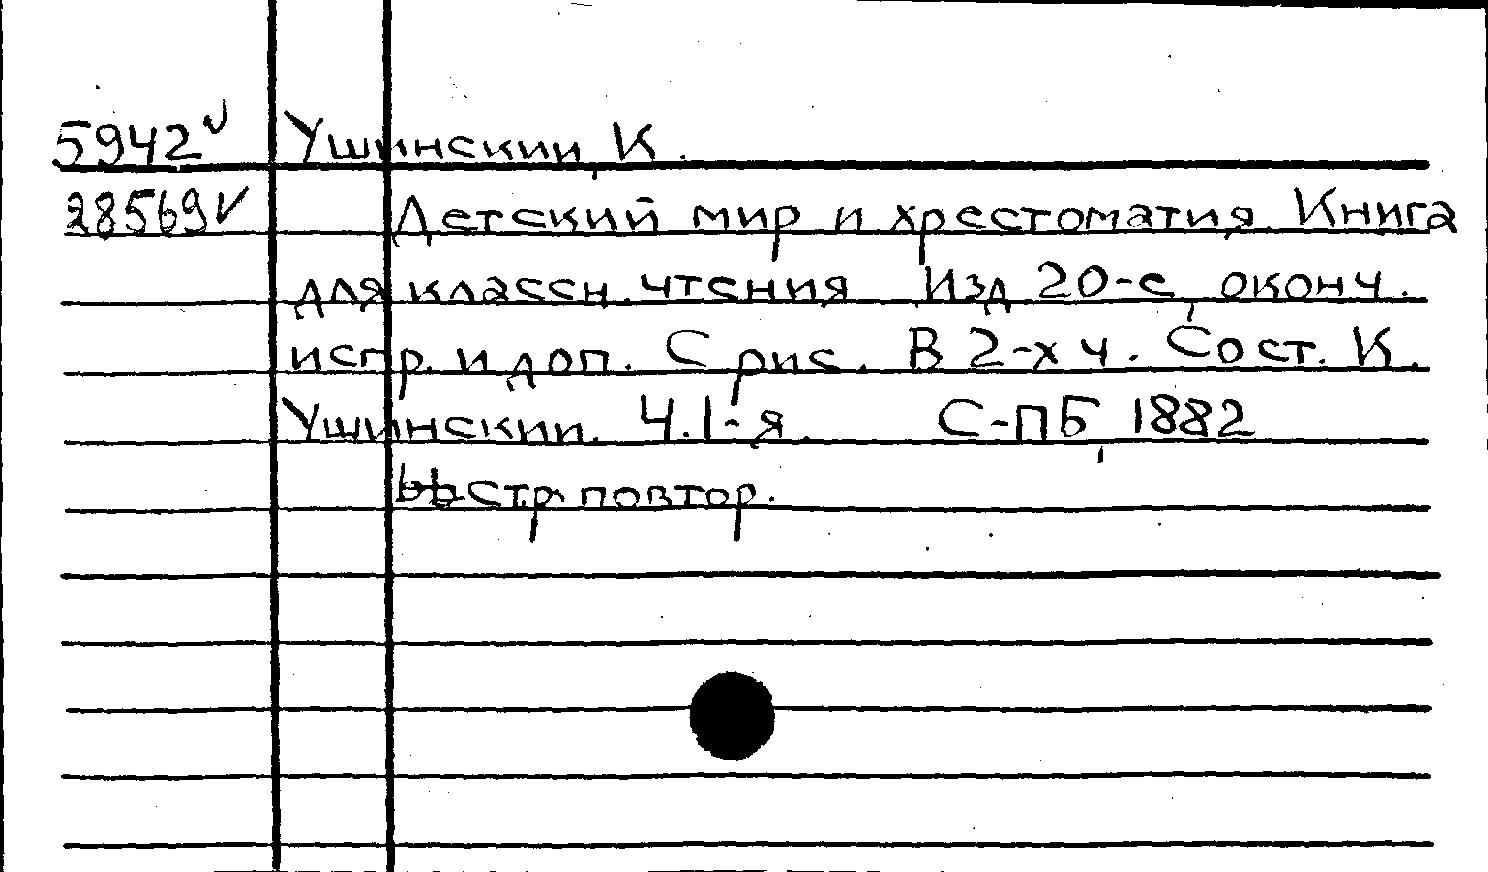 5942 ✓ Ушинский, К.
28569 ✓ Детский мир и хрестоматия. Книга
для классн. чтения Изд 20-е, оконч.
испр. и доп. С рис. В 2-х ч. Сост. К.
Ушинский. Ч.1-я. С-ПБ, 1882
стр. повтор.